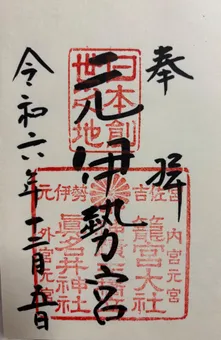 奉拝
日本創世之地
元伊勢宮
元伊勢
吉佐宮
内宮元宮
籠宮大社
眞名井神社
外宮元宮
令和六年十二月五日